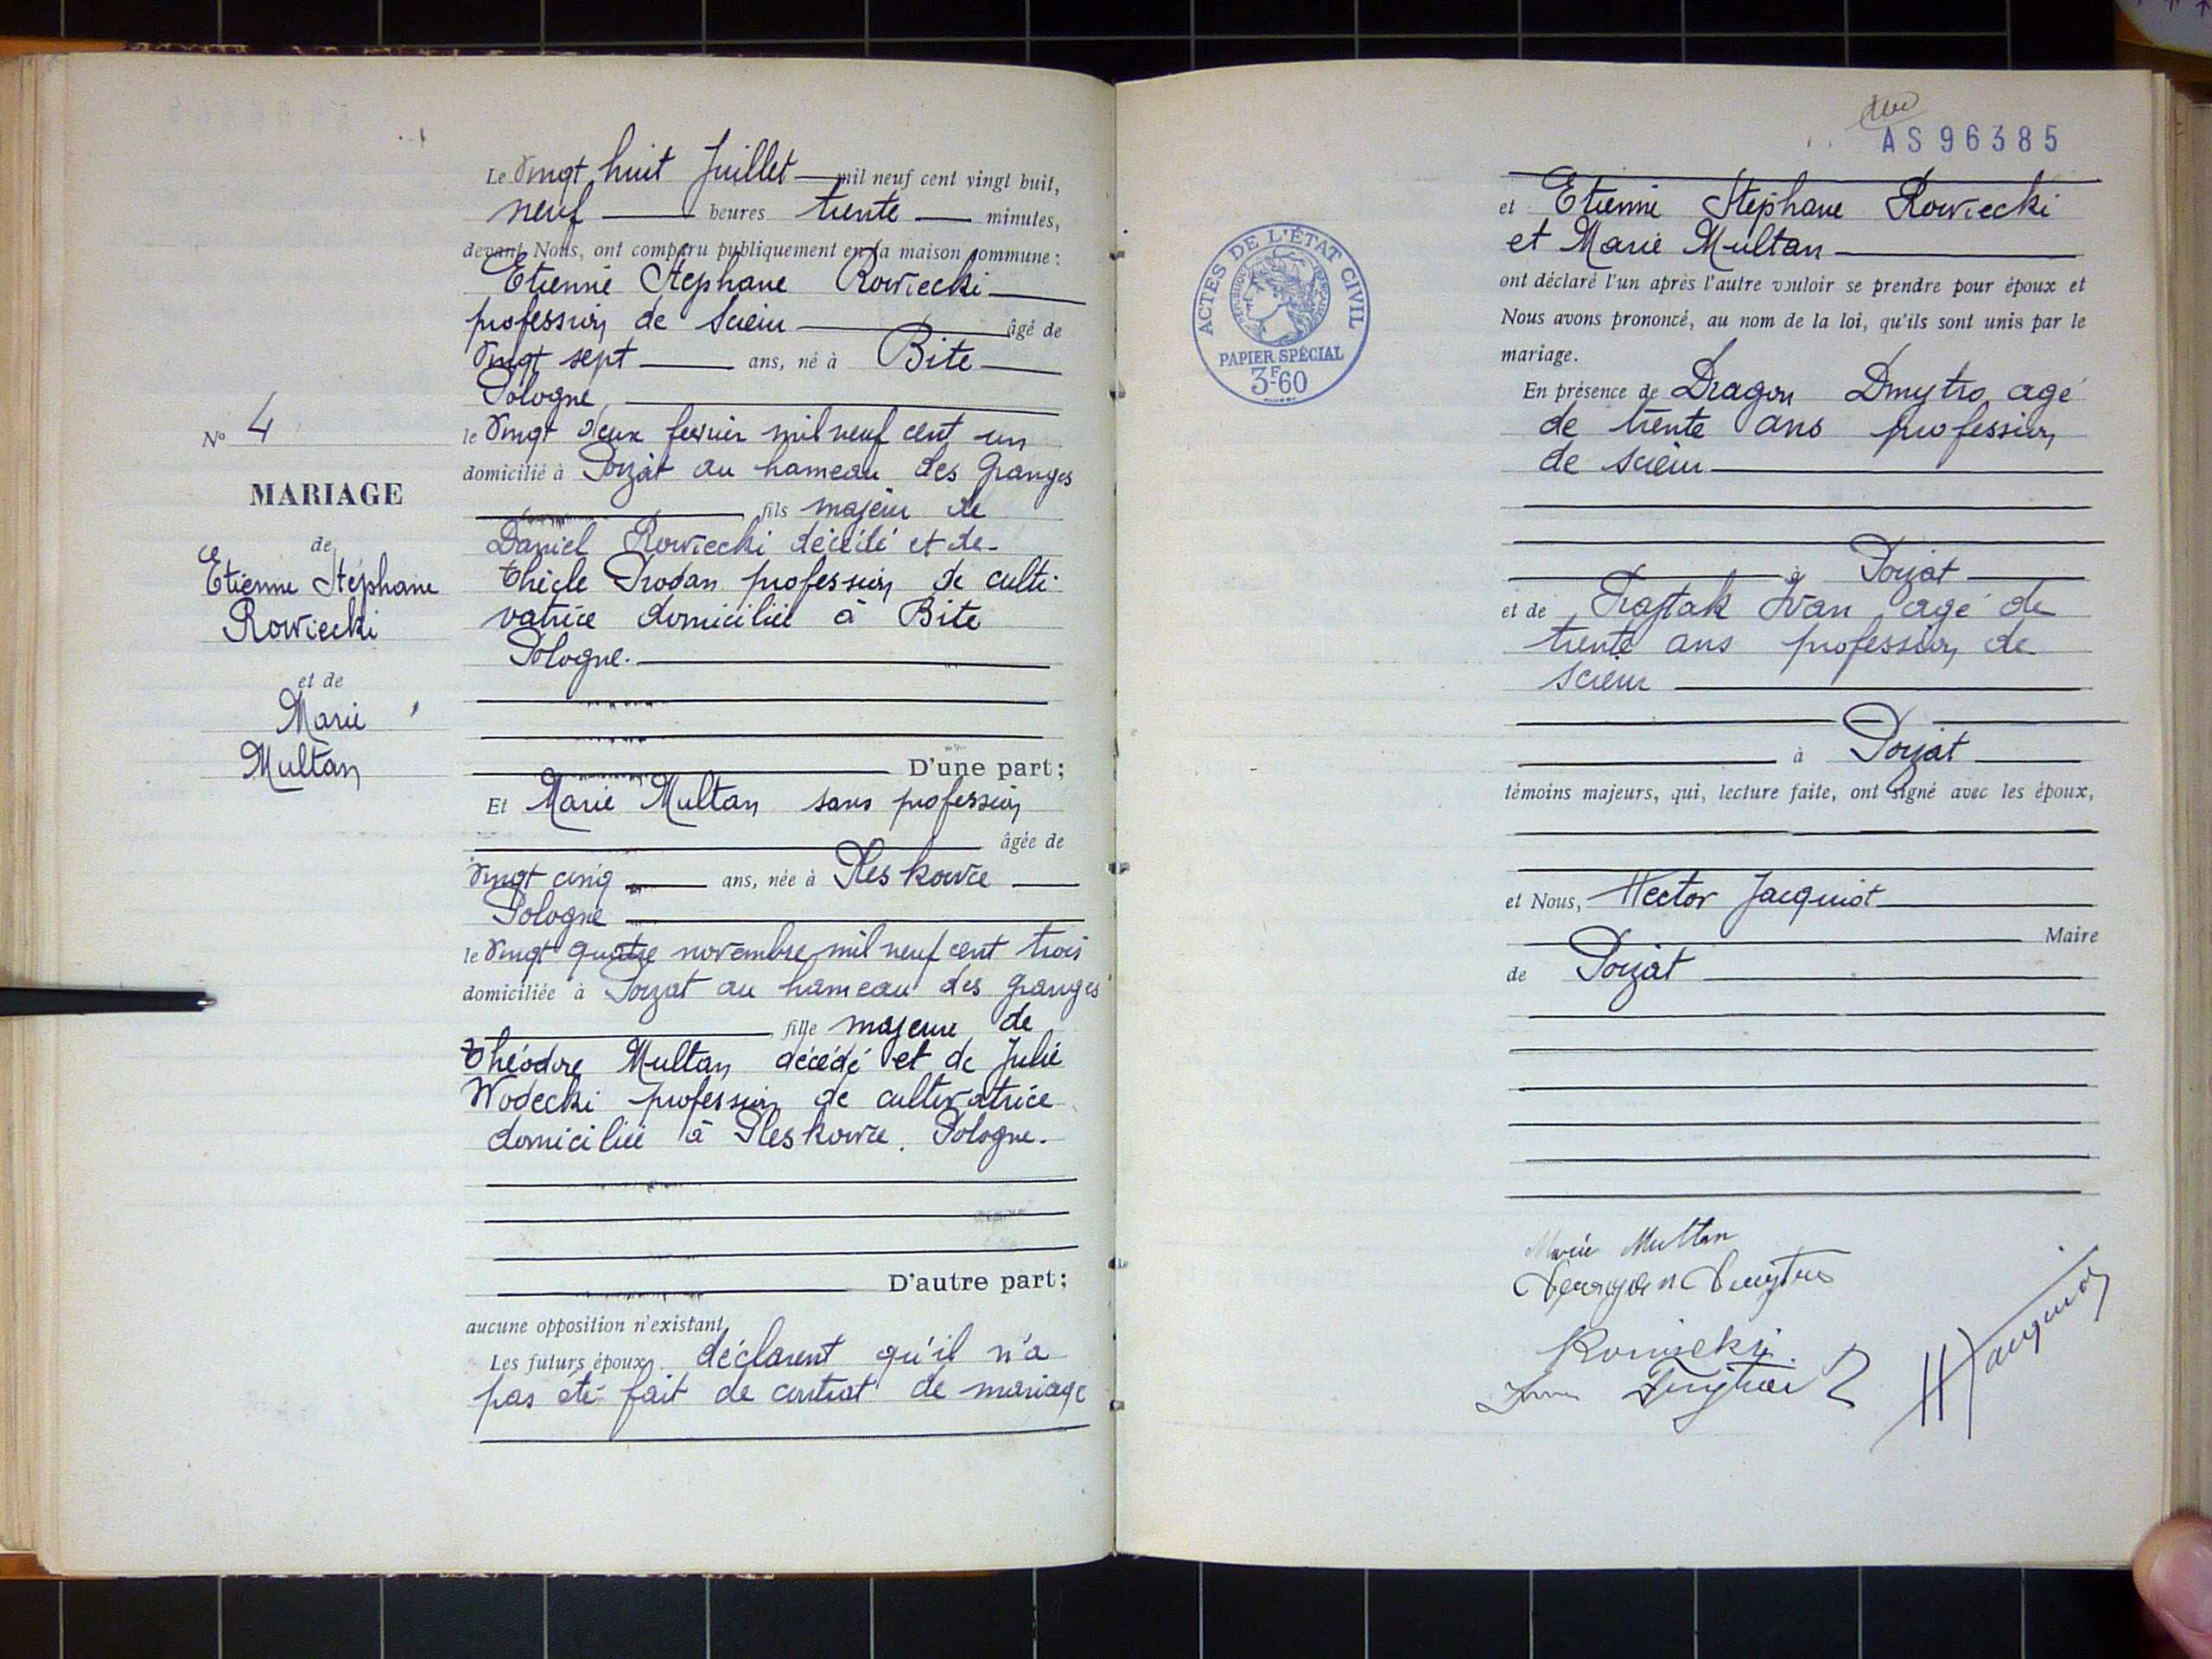 Le Vingt huit Juillet mil neuf cent vingt huit,
neuf heures trente minutes,
devant Nous, ont comparu publiquement en la maison commune :
Etienne Stéphane Rowiecki
profession de scieur âgé de
Vingt sept ans, né à Bite
Pologne,
le Vingt deux fevrier mil neuf cent un
domicilié à Poyzat au hameau des Granges
fils majeur de
Daniel Rowiecki décédé et de
Thècle Prodan profession de culti-
vatrice domiciliée à Bite
Pologne.
D'une part ;
Et Marie Multan sans profession
âgée de
Vingt cinq ans, née à Pleskowce
Pologne
le Vingt quatre novembre mil neuf cent trois
domiciliée à Poyzat au hameau des Granges
fille majeure de
Théodore Multan décédé et de Julie
Wodecki profession de cultivatrice
domiciliée à Pleskowce. Pologne.
D'autre part ;
aucune opposition n'existant,
Les futurs époux déclarent qu'il n'a
pas été fait de contrat de mariage
N° 4
MARIAGE
de
Etienne Stéphane
Rowiecki
et de
Marie
Multan
AS 96385
ACTES DE L'ÉTAT CIVIL
PAPIER SPÉCIAL
3F-60
et Etienne Stéphane Rowiecki
et Marie Multan
ont déclaré l'un après l'autre vouloir se prendre pour époux et
Nous avons prononcé, au nom de la loi, qu'ils sont unis par le
mariage.
En présence de Dragon Dmytro, agé
de trente ans profession
de scieur
à Poyzat
et de Ivan agé de
trente ans profession de
scieur
à Poyzat
témoins majeurs, qui, lecture faite, ont signé avec les époux,
et Nous, Hector Jacquiot
Maire
de Poyzat
Marie Multan
Rowiecki
H Jacquiot